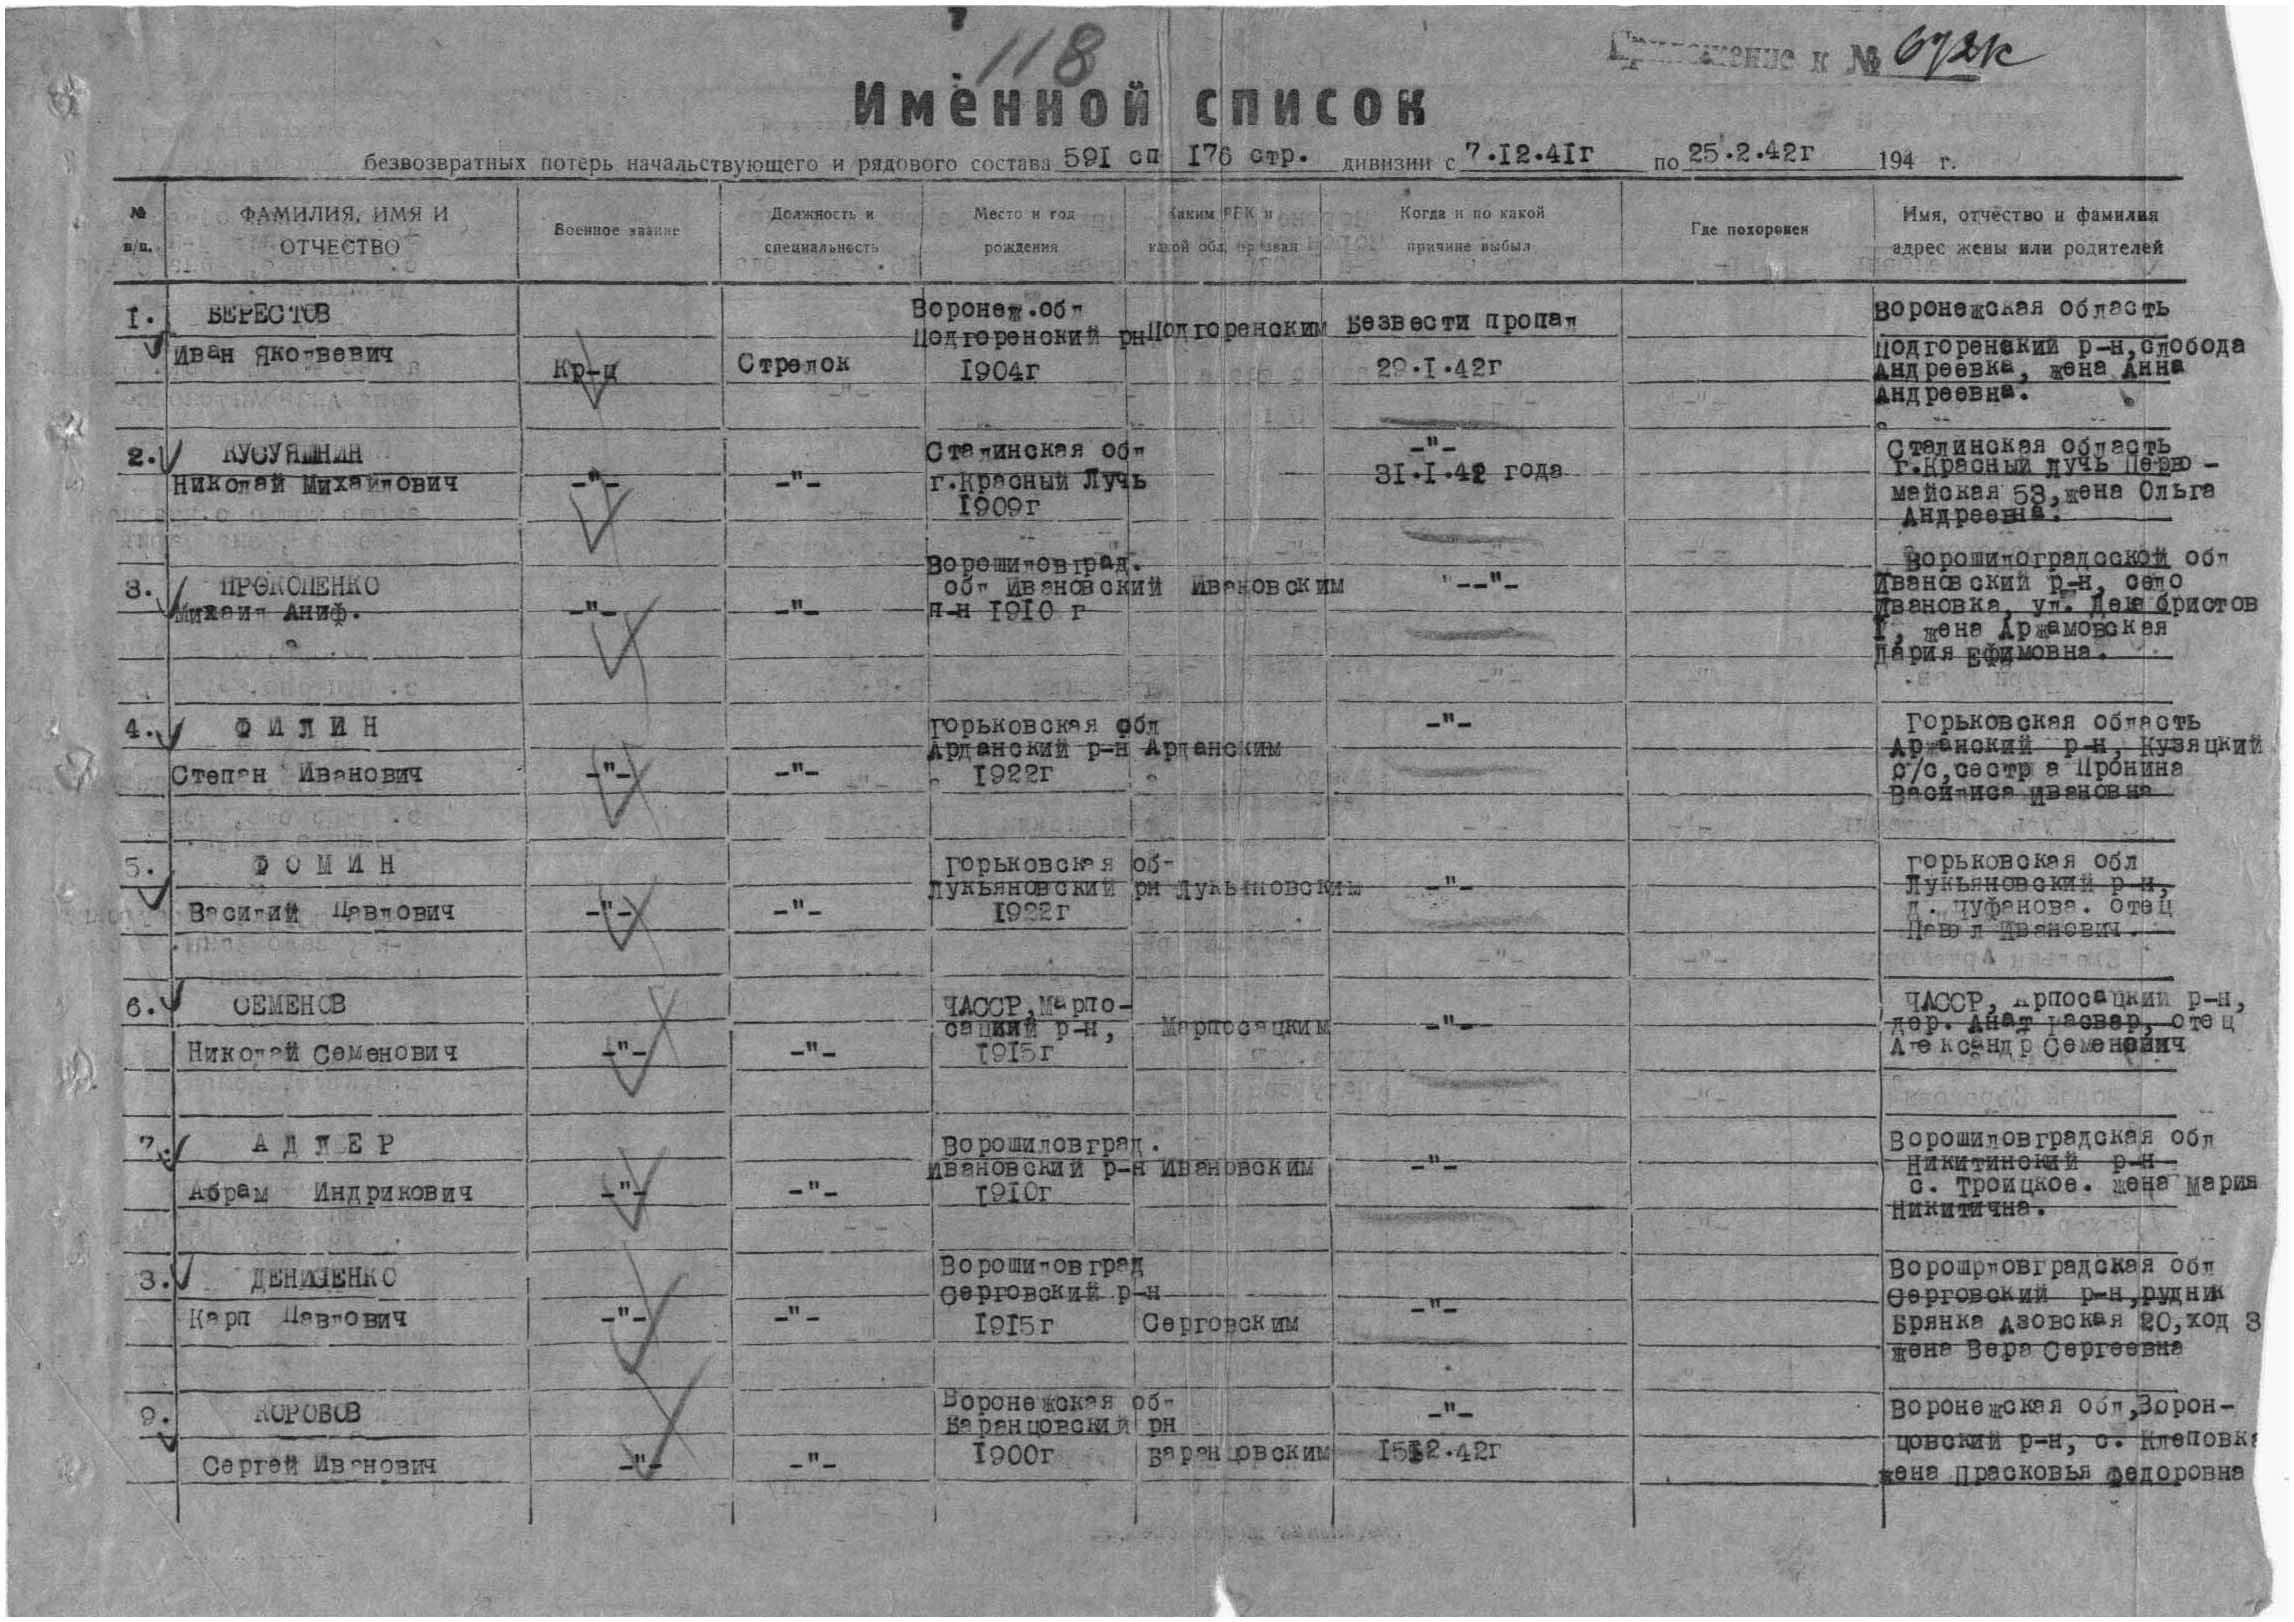 118
Приложение к № 672к
Именной список
безвозвратных потерь начальствующего и рядового состава 591 сп 176 стр. дивизии с 7.12.41г по 25.2.42г 194 г.
№ п/п.
ФАМИЛИЯ, ИМЯ И ОТЧЕСТВО
Военное звание
Должность и специальность
Место и год рождения
Каким РВК и какой обл. призван
Когда и по какой причине выбыл
Где похоронен
Имя, отчество и фамилия адрес жены или родителей
1.
БЕРЕСТОВ
Иван Яковлевич
Кр-ц
Стрелок
Воронеж.обл
Подгоренский рн
1904г
Подгоренским
Безвести пропал
29.1.42г
Воронежская область
Подгоренский р-н,слобода
Андреевка, жена Анна
Андреевна.
2.
Николай Михайлович
-"-
-"-
Сталинская обл
г.Красный Лучь
1909г
-"-
31.1.42 года
Сталинская область
г.Красный Лучь Перво-
майская 53,жена Ольга
Андреевна.
3.
ПРОКОПЕНКО
Михаил Аниф.
-"-
-"-
Ворошиловград.
обл Ивановский
н-н 1910 г
Ивановским
"--"-
Ворошилоградсской обл
Ивановский р-н, село
Ивановка, ул. Декабристов
1, жена Аржамовская
Дария Ефимовна.
4.
ФИЛИН
Степан Иванович
-"-
-"-
Горьковская обл
Арданский р-н
1922г
Арданским
-"-
Горьковская область
Аржанский р-н, Кузяцкий
с/с,сестра Пронина
Василиса Ивановна
5.
ФОМИН
Василий Павлович
-"-
-"-
Горьковская об-
Лукьяновский рн
1922г
Лукьяновским
-"-
Горьковская обл
Лукьяновский р-н,
д. Чуфанова. отец
Павел Иванович.
6.
СЕМЕНОВ
Николай Семенович
-"-
-"-
ЧАССР,Марпо-
сацкий р-н,
1915г
Марпосацким
-"-
ЧАССР, арпосацкий р-н,
дер. отец
Александр Семенович
7.
АДЛЕР
Абрам Индрикович
-"-
-"-
Ворошиловград.
Ивановский р-н
1910г
Ивановским
-"-
Ворошиловградская обл
Никитинский р-н
с. Троицкое. жена Мария
Никитична.
8.
Карп Павлович
-"-
-"-
Ворошиловград
Серговский р-н
1915г
Серговским
-"-
Ворошрловградская обл
Серговский р-н,рудник
Брянка Азовская 20,ход 3
жена Вера Сергеевна
9.
КОРОБОВ
Сергей Иванович
-"-
-"-
Воронежская об-
Варанцовский рн
1900г
Варанцовским
-"-
Воронежская обл,Ворон-
цовский р-н, с. Клеповка
жена Прасковья Федоровна